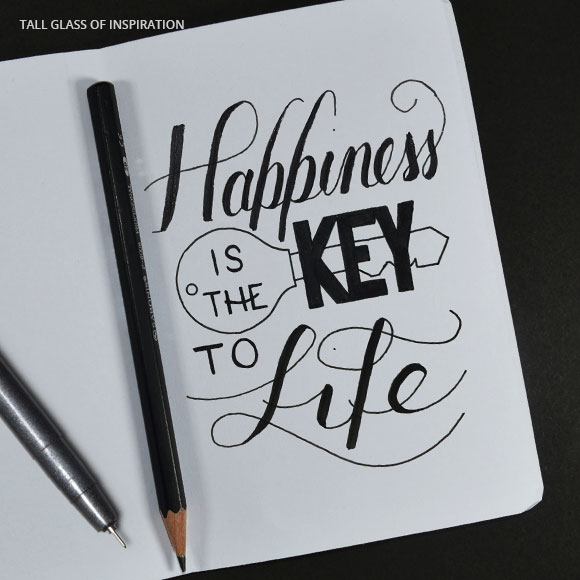 TALL GLASS OF INSPIRATION
Happiness
IS THE KEY
TO Life